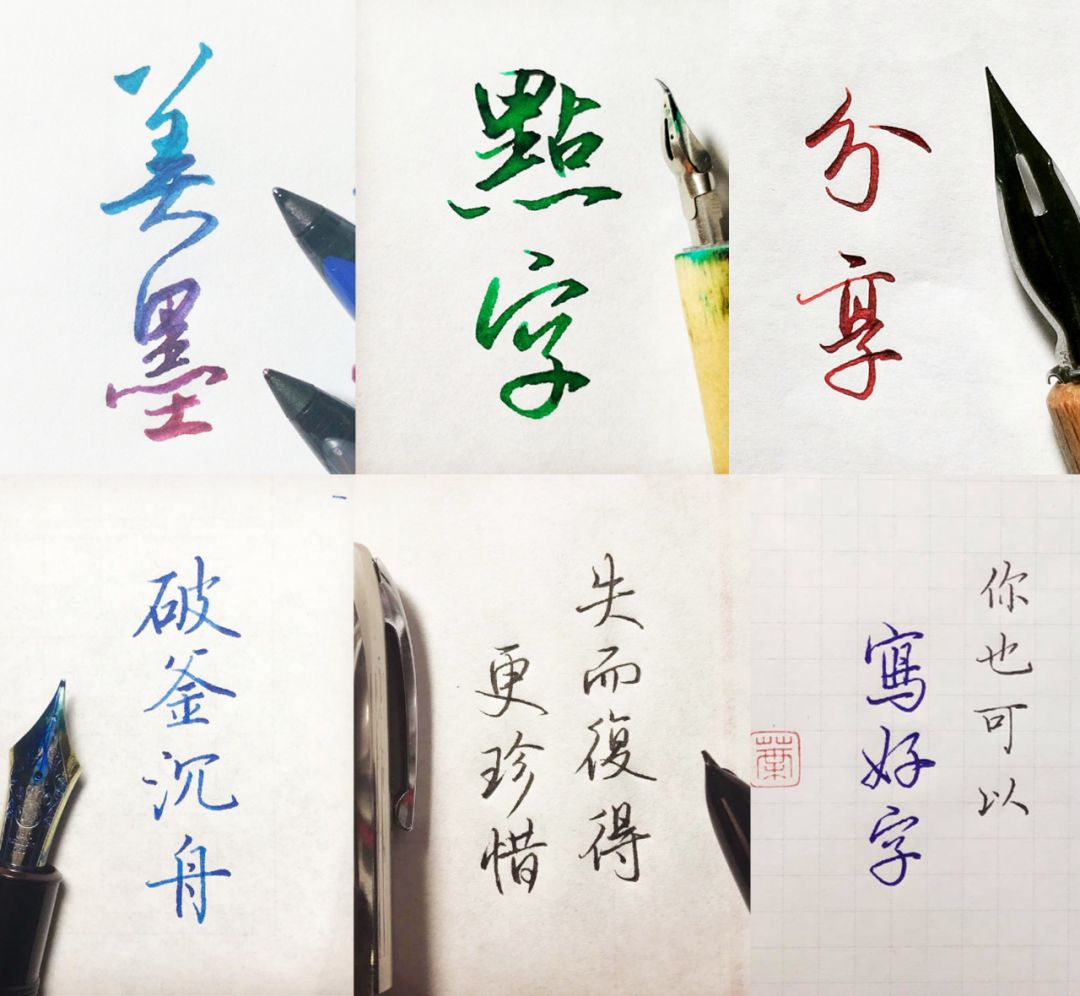 美墨
點字
分享
破釜沉舟
失而復得
更珍惜
你也可以
寫好字
葉